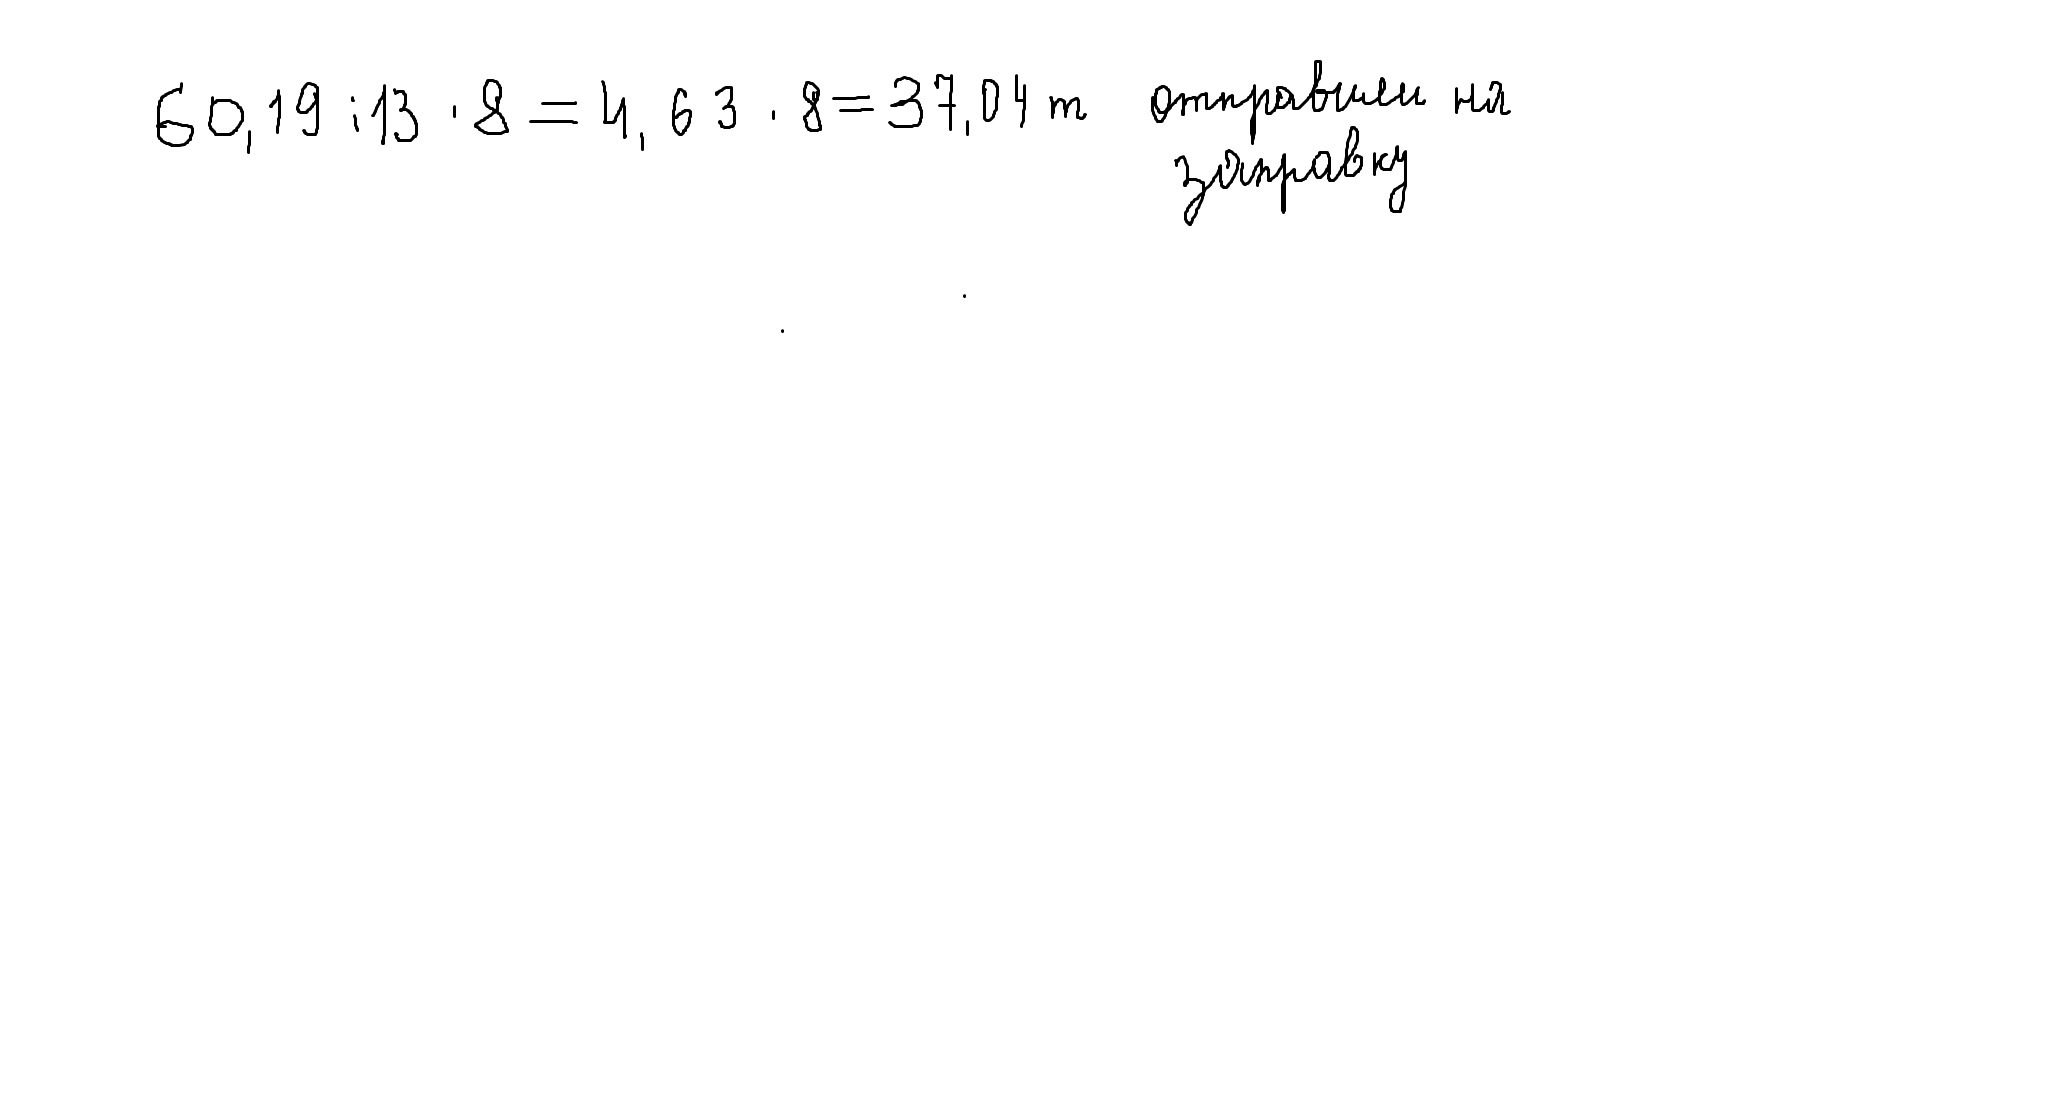 60,19 : 13 · 8 = 4,63 · 8 = 37,04 т отправили на
заправку